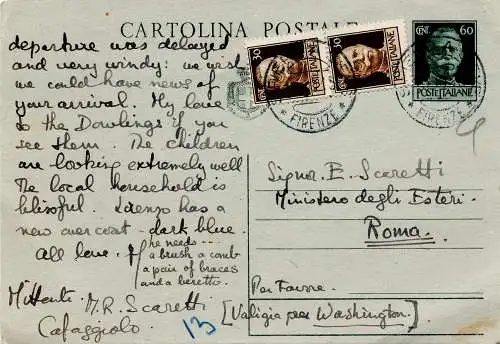 CARTOLINA POSTALE
departure was delayed
and very windy: we wish
we could have news of
your arrival. My love
to the Dowlings if you
see them. The children
are looking extremely well
The local household is
blissful. Lorenzo has a
new overcoat - dark blue.
All love.
he needs ---
a brush a comb
a pair of braces
and a beretto.
Mittente M.R. Scaretti
Cafaggiolo
13
CENT. 30
POSTE ITALIANE
CENT. 30
POSTE ITALIANE
CENT. 60
POSTE ITALIANE
* FIRENZE *
* FIRENZE *
Signor E. Scaretti
Ministero degli Esteri.
Roma.
Per Favore
[Valigia per Washington]